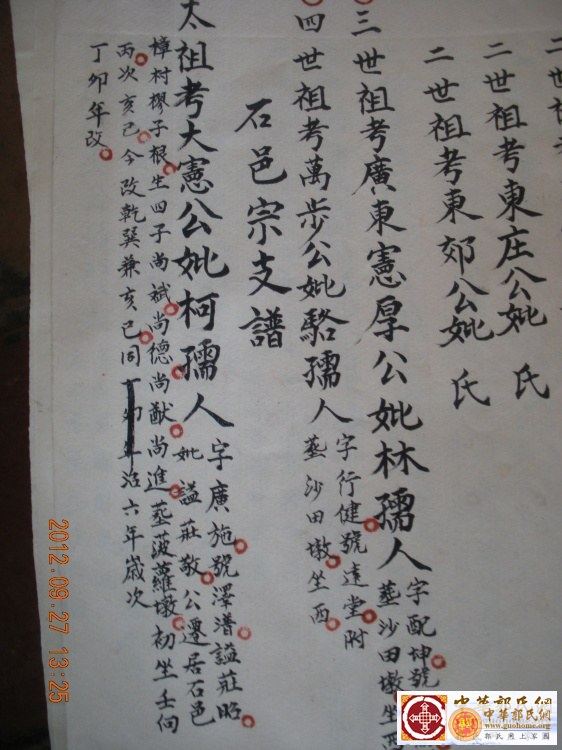 二世祖考東庄公妣 氏
二世祖考東郊公妣 氏
三世祖考廣東憲厚公妣林孺人
字配坤號
葬沙田墩坐酉
四世祖考萬步公妣駱孺人
字行健號達堂附
葬沙田墩坐西
石邑宗支譜
太祖考大憲公妣柯孺人
字廣施號澤潽謚莊昭
妣謚莊敬公遷居石邑
樟村樛子根生四子尚斌尚德尚猷尚進葬菠蘿墩初坐壬向
丙次亥己今改乾巽兼亥己同
治六年歲次
丁卯年改
2012.09.27 13:25
中華郭氏網
中華郭氏網
www.guohome.org
郭氏網上家園